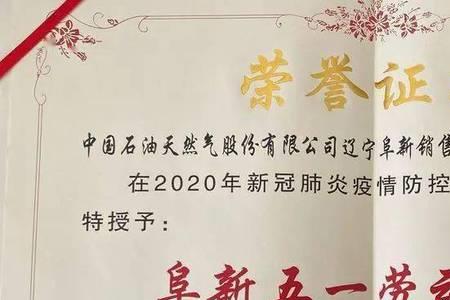 荣誉证
中国石油天然气股份有限公司辽宁阜新销售
在2020年新冠肺炎疫情防控
特授予：
阜新五一劳